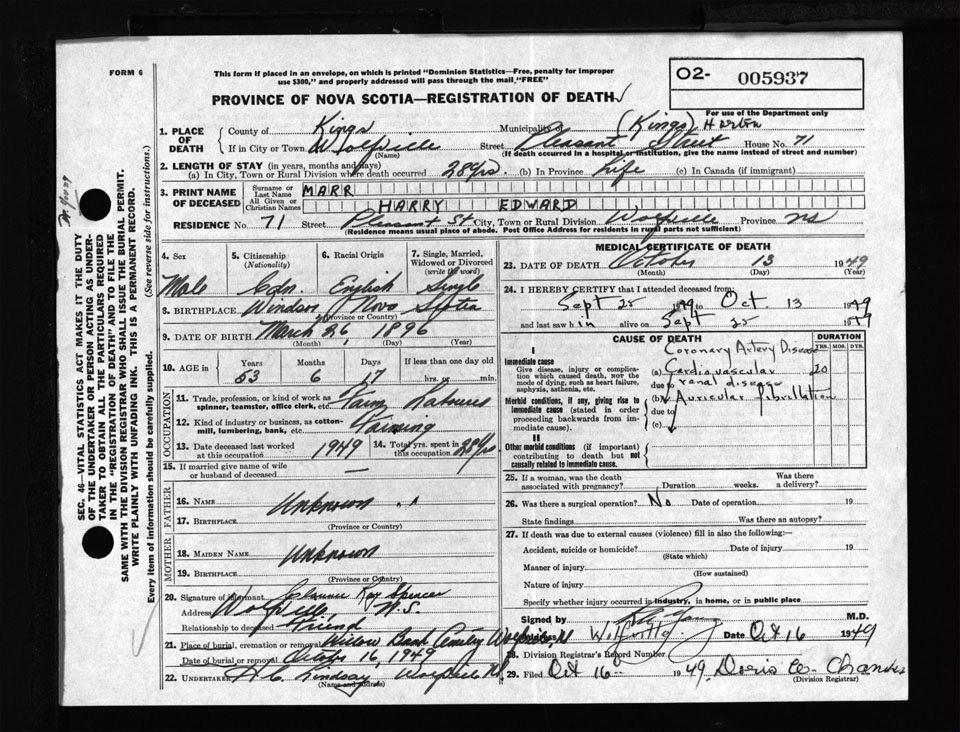 FORM 6
This form if placed in an envelope, on which is printed "Dominion Statistics—Free, penalty for improper
use $300," and properly addressed will pass through the mail "FREE"
O2- 005937
PROVINCE OF NOVA SCOTIA—REGISTRATION OF DEATH
For use of the Department only
1. PLACE OF DEATH
County of Kings Municipality of (Kings)
If in City or Town Wolfville Street Pleasant Street House No. 71
(Name) (If death occurred in a hospital or institution, give the name instead of street and number)
2. LENGTH OF STAY (in years, months and days)
(a) In City, Town or Rural Division where death occurred 28 yrs. (b) In Province Life (c) In Canada (if immigrant)
3. PRINT NAME OF DECEASED
Surname or Last Name MARR
All Given or Christian Names HARRY EDWARD
RESIDENCE No. 71 Street Pleasant St City, Town or Rural Division Wolfville Province NS
(Residence means usual place of abode. Post Office Address for residents in rural parts not sufficient)
4. Sex
Male
5. Citizenship
(Nationality)
Cdn.
6. Racial Origin
English
7. Single, Married,
Widowed or Divorced
(write the word)
Single
8. BIRTHPLACE Windsor Nova Scotia
(Province or Country)
9. DATE OF BIRTH March 26, 1896
(Month) (Day) (Year)
10. AGE in
Years Months Days If less than one day old
53 6 17 hrs. or min.
OCCUPATION
11. Trade, profession, or kind of work as
spinner, teamster, office clerk, etc. Farm Labourer
12. Kind of industry or business, as cotton-
mill, lumbering, bank, etc. Farming
13. Date deceased last worked
at this occupation 1949
14. Total yrs. spent in
this occupation 28 yrs
15. If married give name of wife
or husband of deceased —
FATHER
16. NAME Unknown
17. BIRTHPLACE
(Province or Country)
MOTHER
18. MAIDEN NAME Unknown
19. BIRTHPLACE
(Province or Country)
20. Signature of informant Ray Spencer
Address Wolfville N.S.
Relationship to deceased Friend
21. Place of burial, cremation or removal Willow Bank Wolfville
Date of burial or removal October 16, 1949
22. UNDERTAKER H C Lindsay Wolfville NS
(Name and address)
MEDICAL CERTIFICATE OF DEATH
23. DATE OF DEATH October 13 1949
(Month) (Day) (Year)
24. I HEREBY CERTIFY that I attended deceased from
Sept 25 1949 to Oct 13 1949
and last saw him alive on Sept 25 1949
CAUSE OF DEATH
DURATION
YRS. MOS. DYS.
I
Immediate cause
Give disease, injury or complica-
tion which caused death, NOT the
mode of dying, such as heart failure,
asphyxia, asthenia, etc.
Coronary Artery Disease
(a) Cardiovascular 20
due to renal disease
Morbid conditions, if any, giving rise to
immediate cause (stated in order
proceeding backwards from imme-
diate cause).
(b) Auricular fibrillation
due to
(c)
II
Other morbid conditions (if important)
contributing to death but not
causally related to immediate cause.
25. If a woman, was the death
associated with pregnancy? Duration weeks. Was there
a delivery?
26. Was there a surgical operation? No Date of operation 19
State findings Was there an autopsy?
27. If death was due to external causes (violence) fill in also the following:—
Accident, suicide or homicide? Date of injury 19
(State which)
Manner of injury
(How sustained)
Nature of injury
Specify whether injury occurred in industry, in home, or in public place
Signed by M.D.
Address Wolfville Date Oct 16 1949
28. Division Registrar's Record Number
29. Filed Oct 16 1949,
(Division Registrar)
SEC. 46 VITAL STATISTICS ACT MAKES IT THE DUTY
OF THE UNDERTAKER OR PERSON ACTING AS UNDER-
TAKER TO OBTAIN ALL THE PARTICULARS REQUIRED
IN THE "REGISTRATION OF DEATH" AND TO FILE THE
SAME WITH THE DIVISION REGISTRAR WHO SHALL ISSUE THE BURIAL PERMIT.
WRITE PLAINLY WITH UNFADING INK. THIS IS A PERMANENT RECORD.
Every item of information should be carefully supplied. (See reverse side for instructions.)